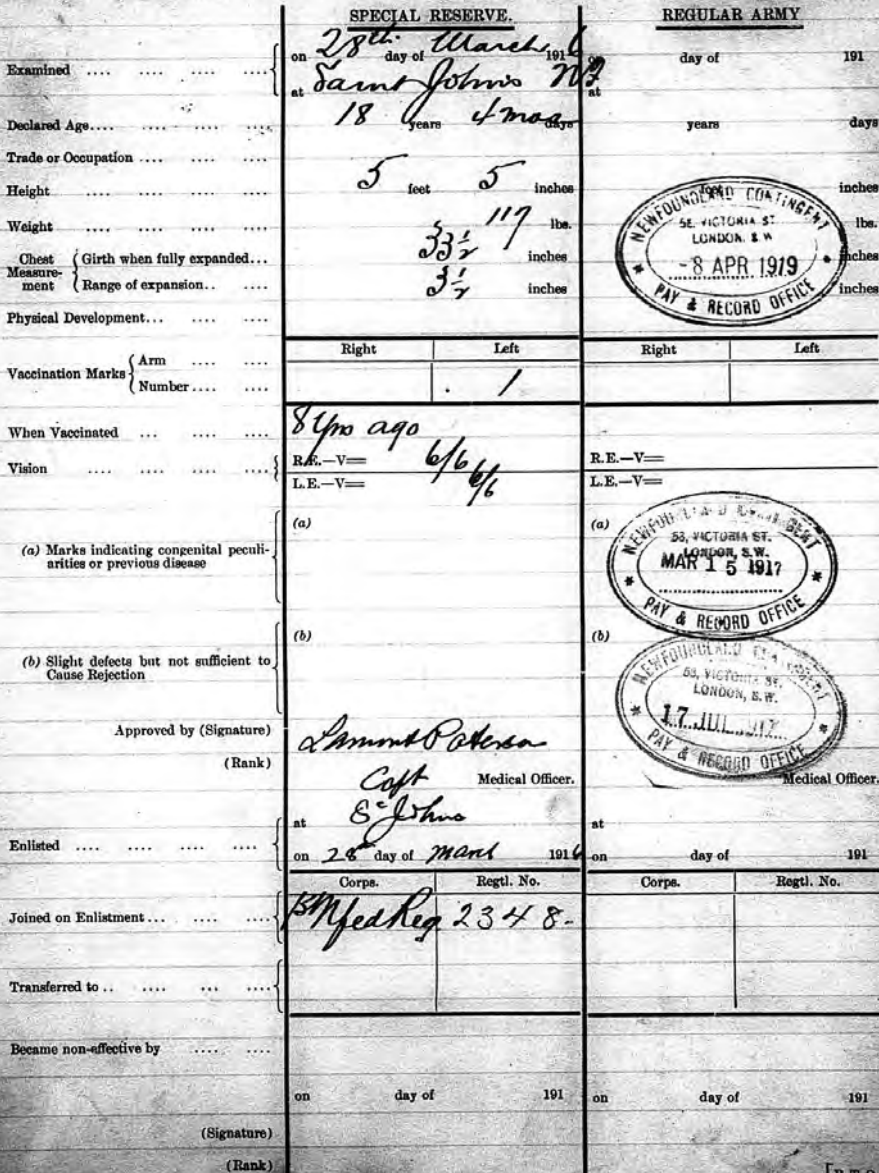 SPECIAL RESERVE. REGULAR ARMY
Examined .... .... .... .... on 28th day of March 1916 on day of 191
at Saint Johns Nf at
Declared Age.... .... .... .... 18 years 4 mos days years days
Trade or Occupation .... .... ....
Height .... .... .... .... 5 feet 5 inches feet inches
Weight .... .... .... .... 117 lbs. lbs.
Chest Measure-ment Girth when fully expanded... 33½ inches inches
Range of expansion.. .... 3½ inches inches
NEWFOUNDLAND CONTINGENT
58, VICTORIA ST.
LONDON. S.W
-8 APR 1919
PAY & RECORD OFFICE
Physical Development... .... ....
Right Left Right Left
Vaccination Marks Arm .... ....
Number.... .... 1
When Vaccinated ... .... .... 8 yrs ago
Vision .... .... .... .... R.E.—V= 6/6 R.E.—V=
L.E.—V= 6/6 L.E.—V=
(a) (a)
(a) Marks indicating congenital peculi-
arities or previous disease
NEWFOUNDLAND CONTINGENT
58, VICTORIA ST.
LONDON, S.W.
MAR 15 1917
PAY & RECORD OFFICE
(b) (b)
(b) Slight defects but not sufficient to
Cause Rejection
NEWFOUNDLAND CONTINGENT
58, VICTORIA ST.
LONDON, S.W.
17 JUL 1917
PAY & RECORD OFFICE
Approved by (Signature) Lamont Paterson
(Rank) Capt Medical Officer. Medical Officer.
at St Johns at
Enlisted .... .... .... .... on 28 day of March 1916 on day of 191
Corps. Regtl. No. Corps. Regtl. No.
Joined on Enlistment... .... .... 1st Nfld Reg 2348-
Transferred to .. .... ... ....
Became non-effective by .... ....
on day of 191 on day of 191
(Signature)
(Rank)